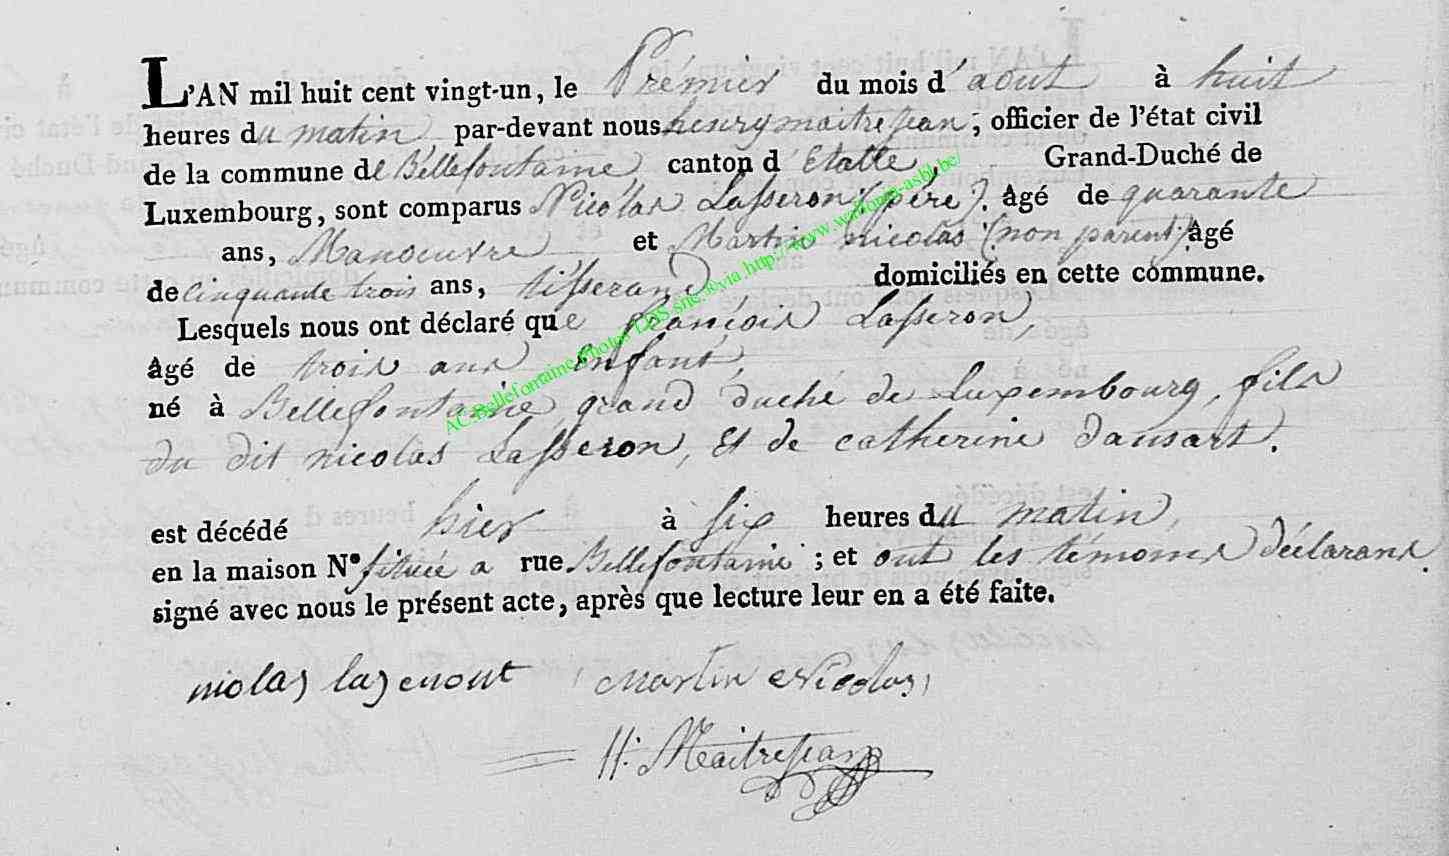 L'AN mil huit cent vingt-un, le Premier du mois d'aout à huit
heures du matin par-devant nous henry maitrejean, officier de l'état civil
de la commune de Bellefontaine canton d'Etalle, Grand-Duché de
Luxembourg, sont comparus Nicolas Lasseron (père), âgé de quarante
ans, Manoeuvre et Martin nicolas (non parent) âgé
de cinquante trois ans, tisserand domiciliés en cette commune.
Lesquels nous ont déclaré que françois Lasseron,
âgé de trois ans enfant,
né à Bellefontaine, grand duché de Luxembourg, fils
du dit nicolas Lasseron, et de catherine dausart.
est décédé hier à six heures du matin,
en la maison N° située a rue Bellefontaine ; et ont les témoins déclarans
signé avec nous le présent acte, après que lecture leur en a été faite.
Martin Nicolas,
H. Maitrejean
AC Bellefontaine Photos LDS http://www.wallonia-asbl.be/